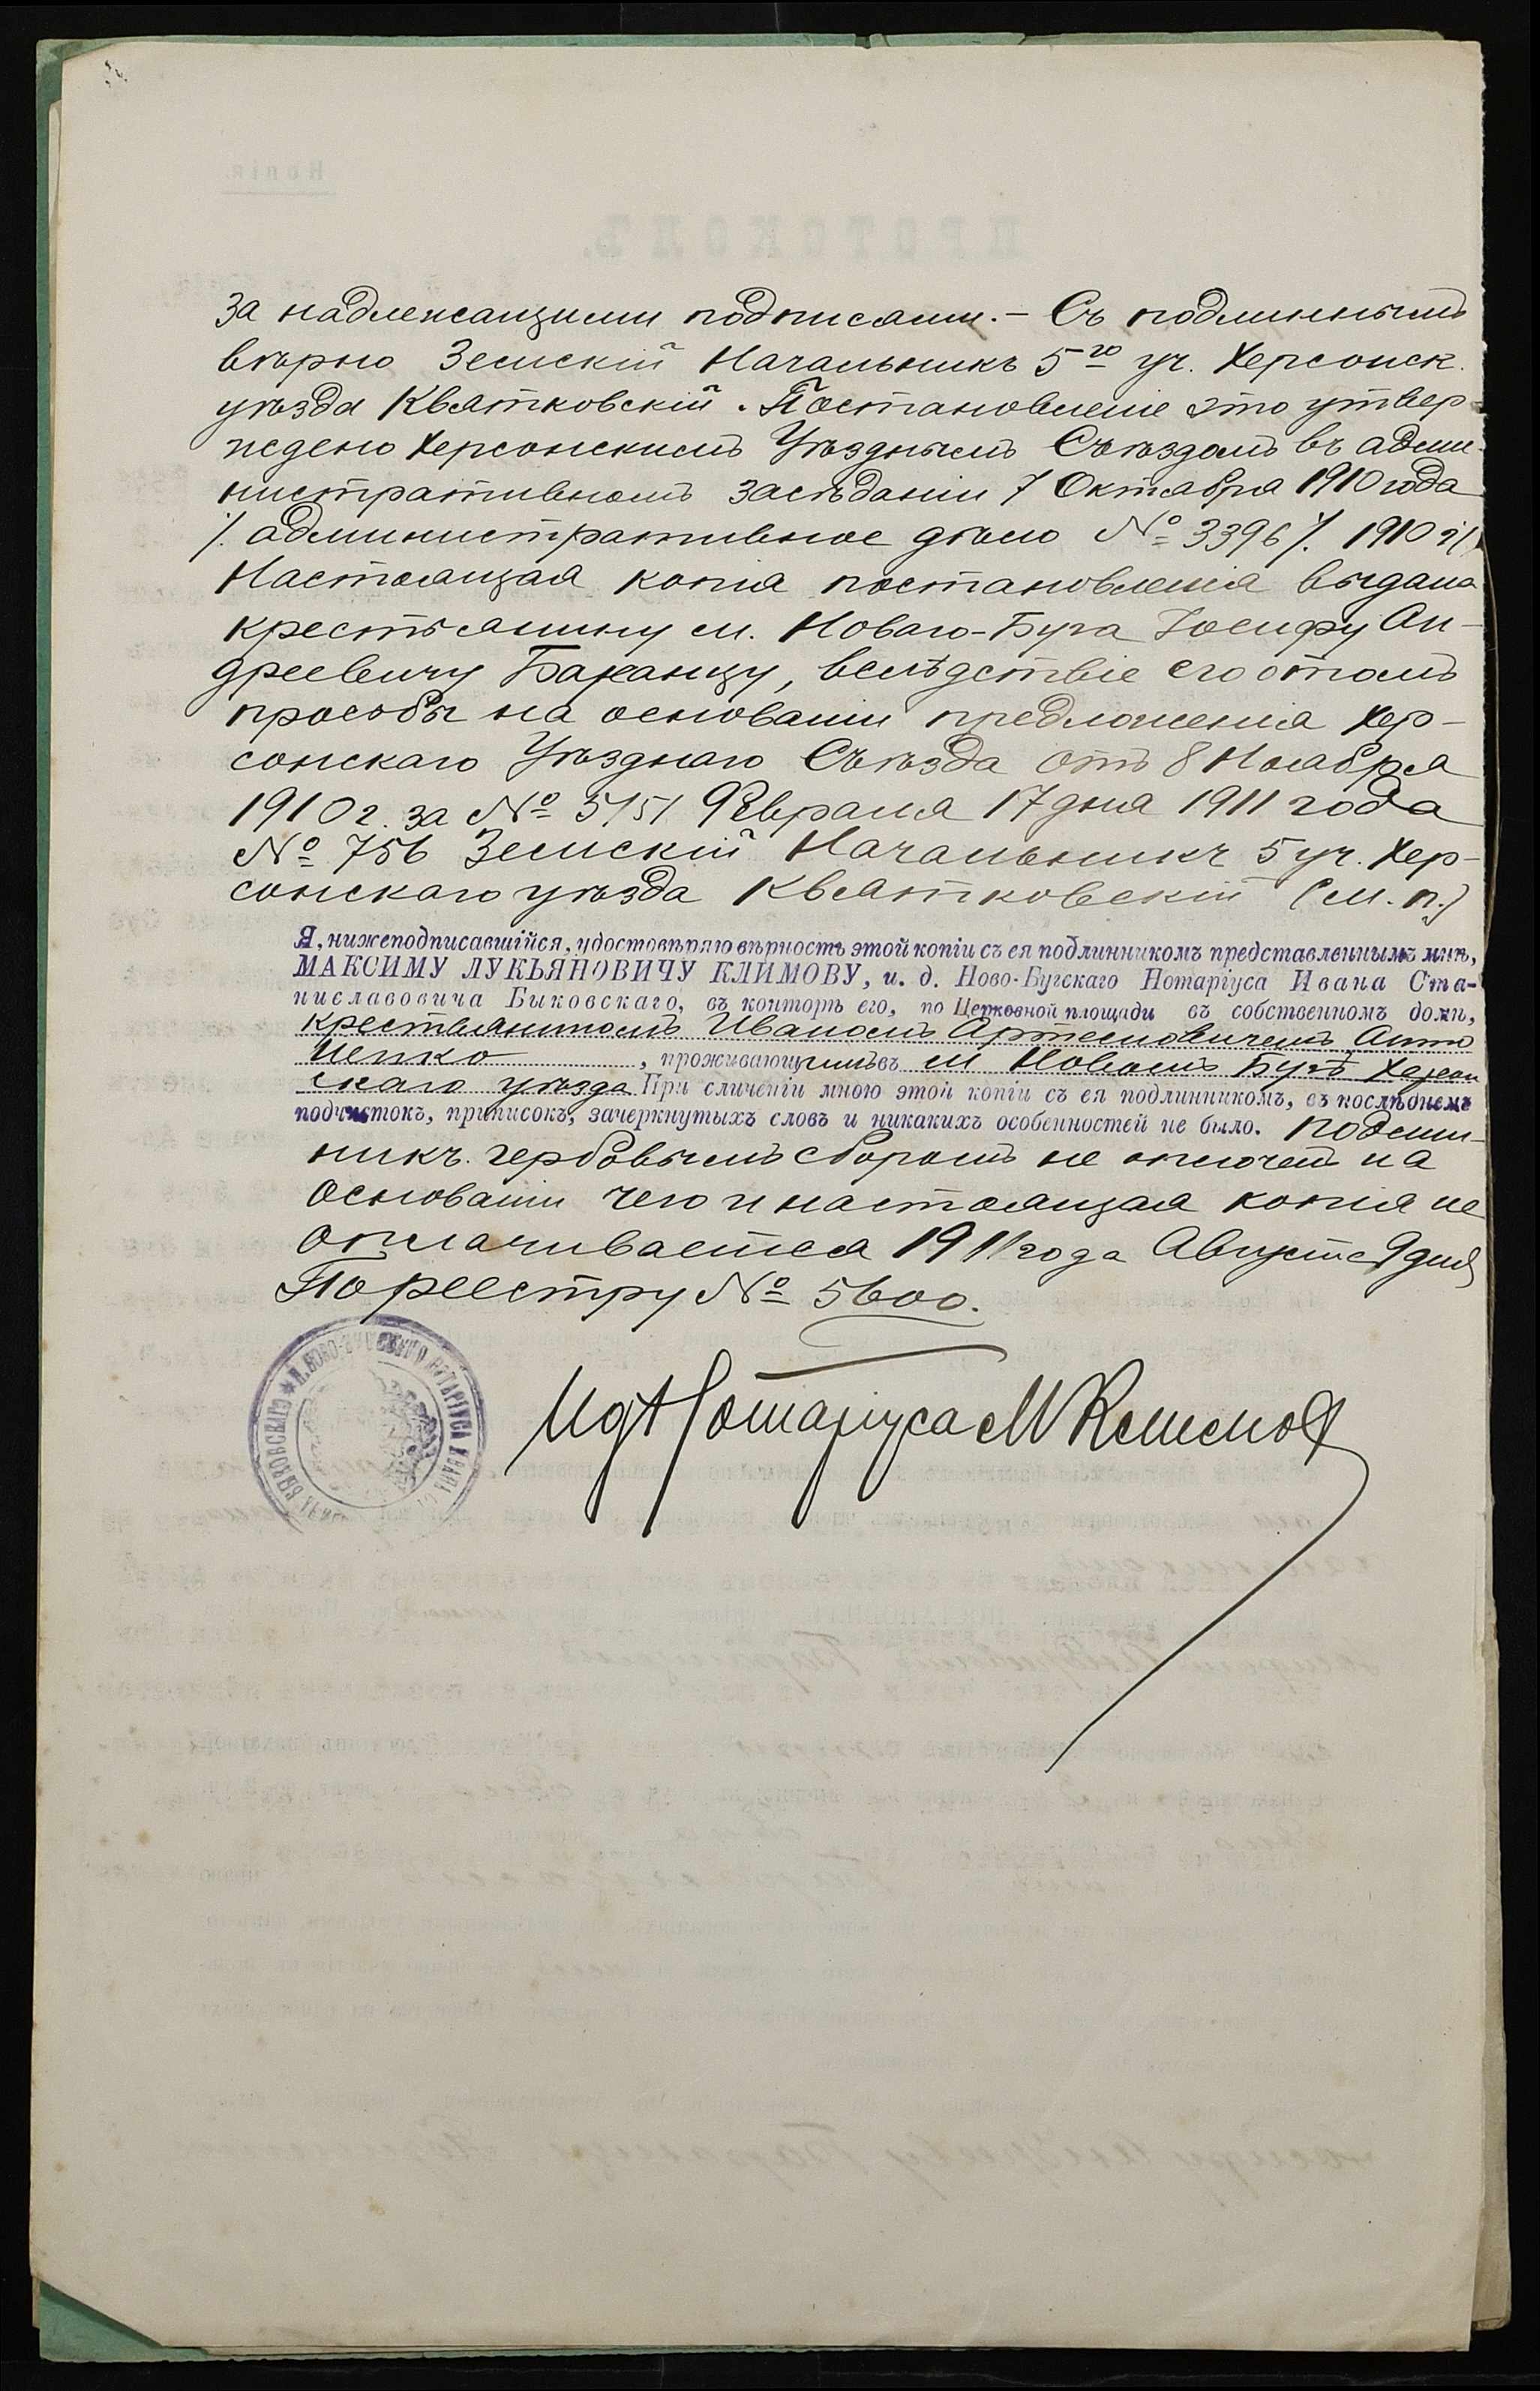 за надлежащими подписями. – Съ подлиннымъ
вѣрно Земскій Начальникъ 5го уч. Херсонск.
уѣзда Квятковскій. Постановленіе это утвер-
ждено Херсонскимъ Уѣзднымъ Съѣздомъ въ адми-
нистративномъ засѣданіи 7 Октября 1910 года
/. административное дѣло № 3396 /. 1910 г/.
Настоящая копія постановленія выдана
крестьянину м. Новаго-Буга Іосифу Ан-
дреевичу Баранцу, вслѣдствіе его о томъ
просьбы на основаніи предложенія Хер-
сонскаго Уѣзднаго Съѣзда отъ 8 Ноября
1910 г. за № 5151 Февраля 17 дня 1911 года
№ 756 Земскій Начальникъ 5 уч. Хер-
сонскаго уѣзда Квятковскій (м. п.)
Я, нижеподписавшійся, удостовѣряю вѣрность этой копіи съ ея подлинникомъ представленнымъ мнѣ,
МАКСИМУ ЛУКЬЯНОВИЧУ КЛИМОВУ, и. д. Ново-Бугскаго Нотаріуса Ивана Ста-
ниславовича Быковскаго, въ конторѣ его, по Церковной площади въ собственномъ домѣ,
крестьяниномъ Иваномъ Артемовичемъ Анто
ненко, проживающимъ въ м Новомъ Бугѣ Херсон
скаго уѣзда При сличеніи мною этой копіи съ ея подлинникомъ, въ послѣднемъ
подчистокъ, приписокъ, зачеркнутыхъ словъ и никакихъ особенностей не было. Подлин-
никъ гербовымъ сборомъ не оплоченъ на
основаніи чего и настоящая копія не
оплачивается 1911 года Августа 9 дня
По реестру № 5600.
И. Д. НОВО-БУГСКАГО НОТАРІУСА ИВАНА БЫКОВСКАГО
Ид Нотаріуса М Климов